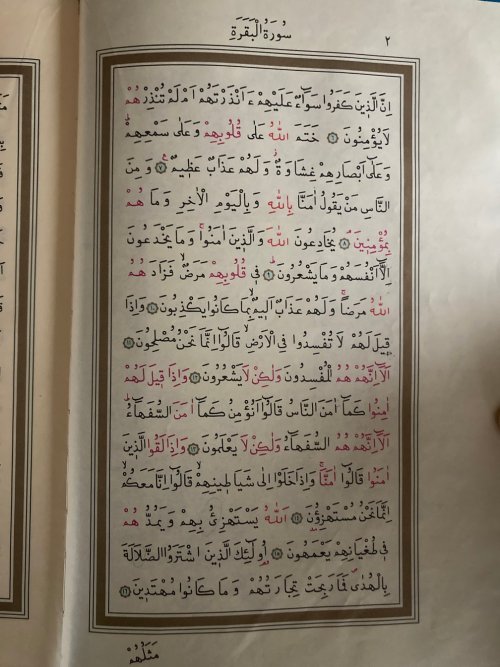 سُورَةُ الْبَقَرَةِ ٢
اِنَّ الَّذ۪ينَ كَفَرُوا سَوَٓاءٌ عَلَيْهِمْ ءَاَنْذَرْتَهُمْ اَمْ لَمْ تُنْذِرْهُمْ
لَا يُؤْمِنُونَ ٦ خَتَمَ اللّٰهُ عَلٰى قُلُوبِهِمْ وَعَلٰى سَمْعِهِمْۜ
وَعَلٰٓى اَبْصَارِهِمْ غِشَاوَةٌۘ وَلَهُمْ عَذَابٌ عَظ۪يمٌ۟ ٧ وَمِنَ
النَّاسِ مَنْ يَقُولُ اٰمَنَّا بِاللّٰهِ وَبِالْيَوْمِ الْاٰخِرِ وَمَا هُمْ
بِمُؤْمِن۪ينَۢ ٨ يُخَادِعُونَ اللّٰهَ وَالَّذ۪ينَ اٰمَنُواۚ وَمَا يَخْدَعُونَ
اِلَّٓا اَنْفُسَهُمْ وَمَا يَشْعُرُونَۜ ٩ ف۪ي قُلُوبِهِمْ مَرَضٌۙ فَزَادَهُمُ
اللّٰهُ مَرَضاًۚ وَلَهُمْ عَذَابٌ اَل۪يمٌۙ بِمَا كَانُوا يَكْذِبُونَ ١٠ وَاِذَا
ق۪يلَ لَهُمْ لَا تُفْسِدُوا فِي الْاَرْضِۙ قَالُٓوا اِنَّمَا نَحْنُ مُصْلِحُونَ ١١
اَلَٓا اِنَّهُمْ هُمُ الْمُفْسِدُونَ وَلٰكِنْ لَا يَشْعُرُونَ ١٢ وَاِذَا ق۪يلَ لَهُمْ
اٰمِنُوا كَمَٓا اٰمَنَ النَّاسُ قَالُٓوا اَنُؤْمِنُ كَمَٓا اٰمَنَ السُّفَهَٓاءُۜ
اَلَٓا اِنَّهُمْ هُمُ السُّفَهَٓاءُ وَلٰكِنْ لَا يَعْلَمُونَ ١٣ وَاِذَا لَقُوا الَّذ۪ينَ
اٰمَنُوا قَالُٓوا اٰمَنَّاۚ وَاِذَا خَلَوْا اِلٰى شَيَاط۪ينِهِمْۙ قَالُٓوا اِنَّا مَعَكُمْۙ
اِنَّمَا نَحْنُ مُسْتَهْزِؤُ۫نَ ١٤ اَللّٰهُ يَسْتَهْزِئُ بِهِمْ وَيَمُدُّهُمْ
ف۪ي طُغْيَانِهِمْ يَعْمَهُونَ ١٥ اُو۬لٰٓئِكَ الَّذ۪ينَ اشْتَرَوُا الضَّلَالَةَ
بِالْهُدٰىۖ فَمَا رَبِحَتْ تِجَارَتُهُمْ وَمَا كَانُوا مُهْتَد۪ينَ ١٦
مَثَلُهُمْ